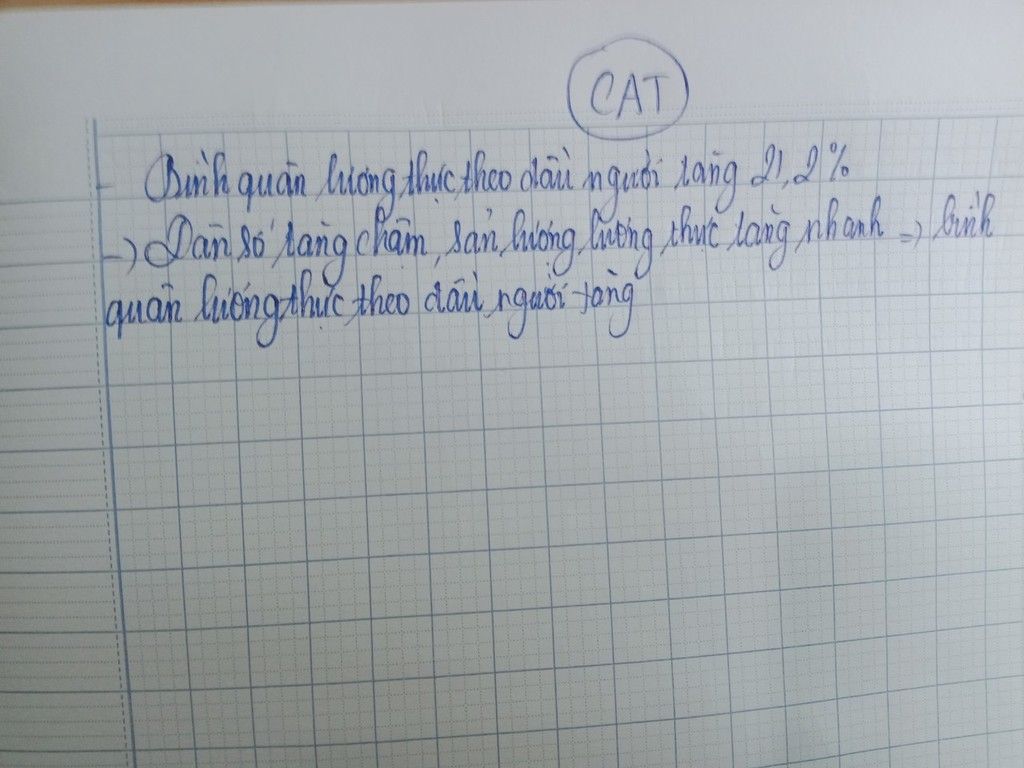 CAT
- Bình quân lương thực theo đầu người tăng 21,2%
-> Dân số tăng chậm, sản lượng lương thực tăng nhanh => bình
quân lương thực theo đầu người tăng